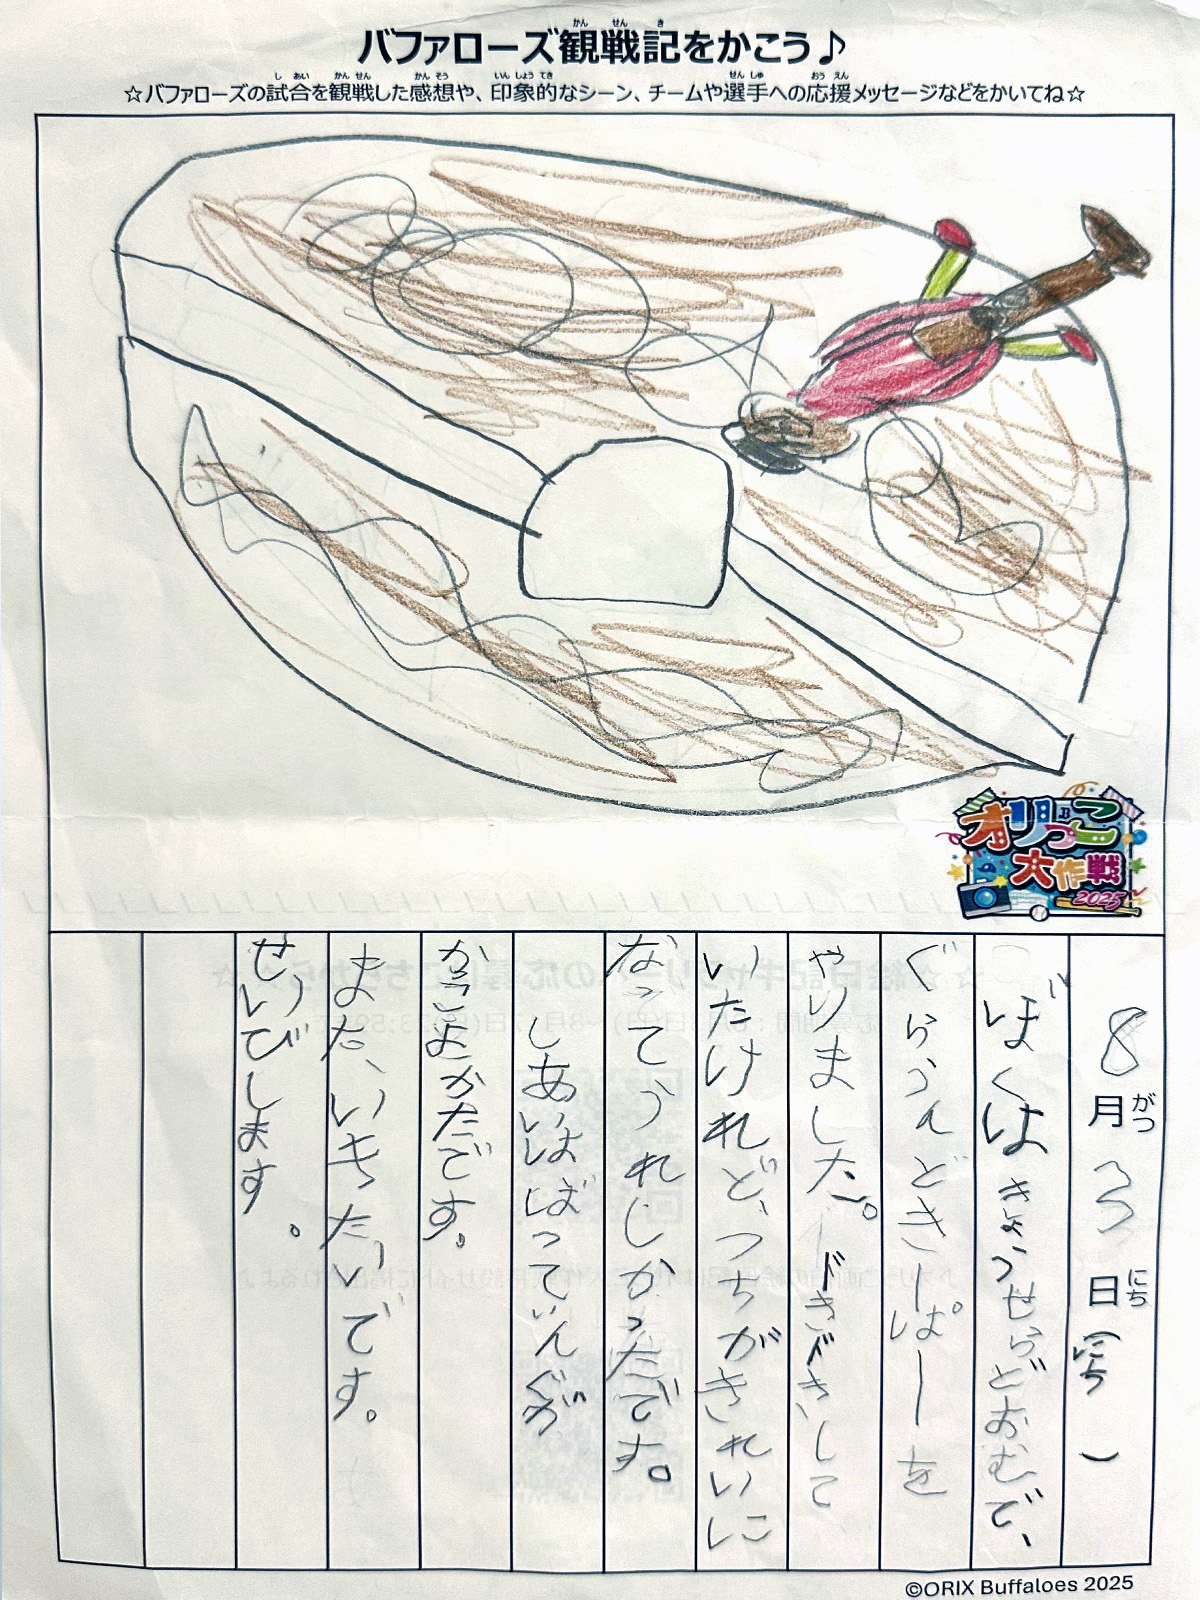 バファローズ観戦記をかこう♪
☆バファローズの試合を観戦した感想や、印象的なシーン、チームや選手への応援メッセージなどをかいてね☆
オリっこ
大作戦
2025
8月3日(にち)
ぼくはきょうせらどおむで、
ぐらうんどきーぱーを
やりました。どきどきして
いたけれど、つちがきれいに
なってうれしかったです。
しあいはばってぃんぐが
かこよかたです。
また、いきたいです。
せいびします。
©ORIX Buffaloes 2025